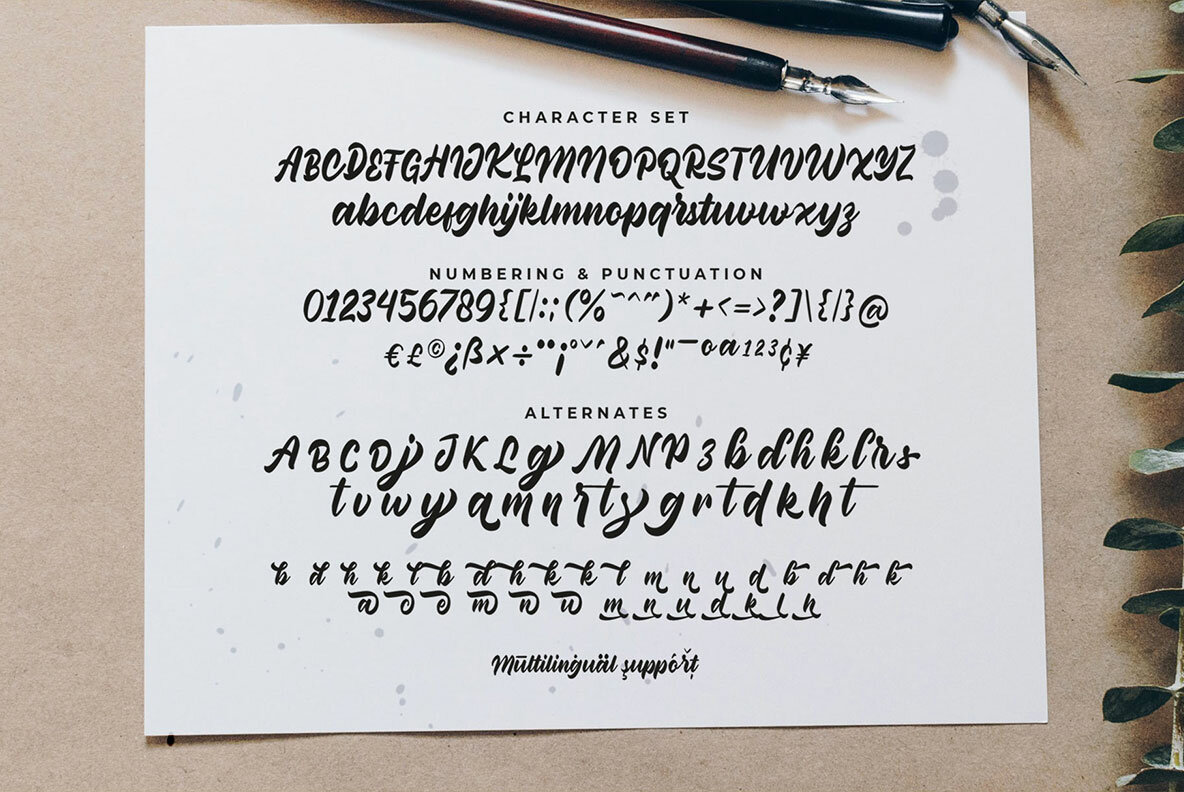 CHARACTER SET
ABCDEFGHIJKLMNOPQRSTUVWXYZ
abcdefghijklmnopqrstuvwxyz
NUMBERING & PUNCTUATION
0123456789{[|:;(%~^")*+<=>?]\{|}@
€£©¿ßx÷¨¡°ˇ´&$!"¯ºª¹²³¢¥
ALTERNATES
ABCDjJKLgMNPzbdhklrs
tvwyamnrtsgrtdkht
b d h k t b d h k k t m n u d b d h k
a o e m n u m n u d k l h
Mūltilinguäl şuppórţ